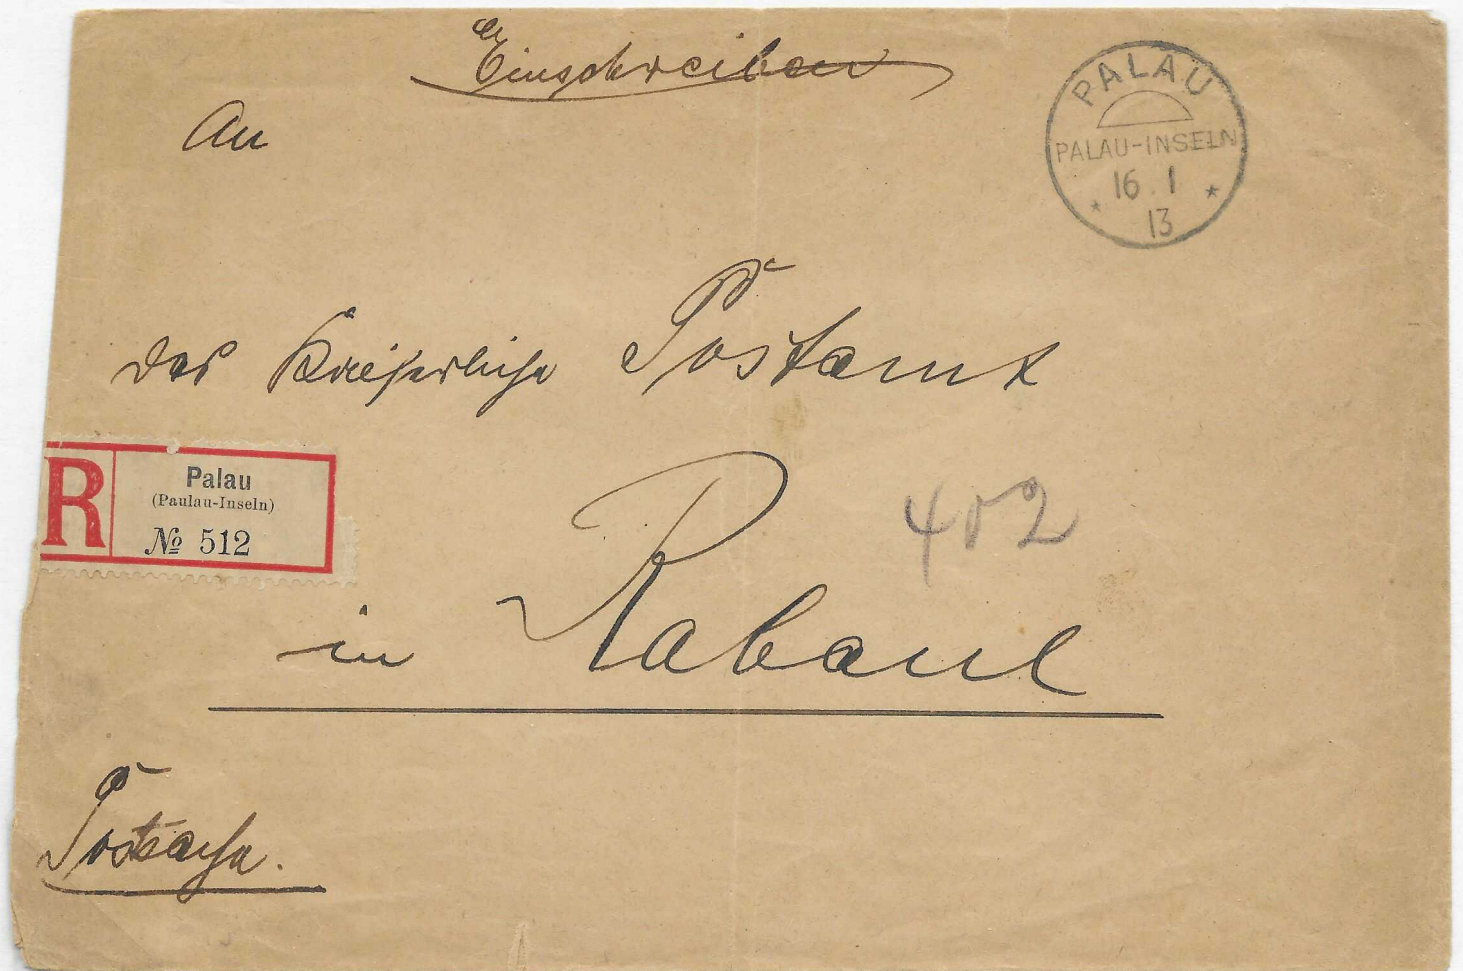 Einschreiben
An
PALAU
PALAU-INSELN
16.1
13
das Kaiserliche Postamt
R
Palau
(Paulau-Inseln)
№ 512
402
in Rabaul
Postsache.